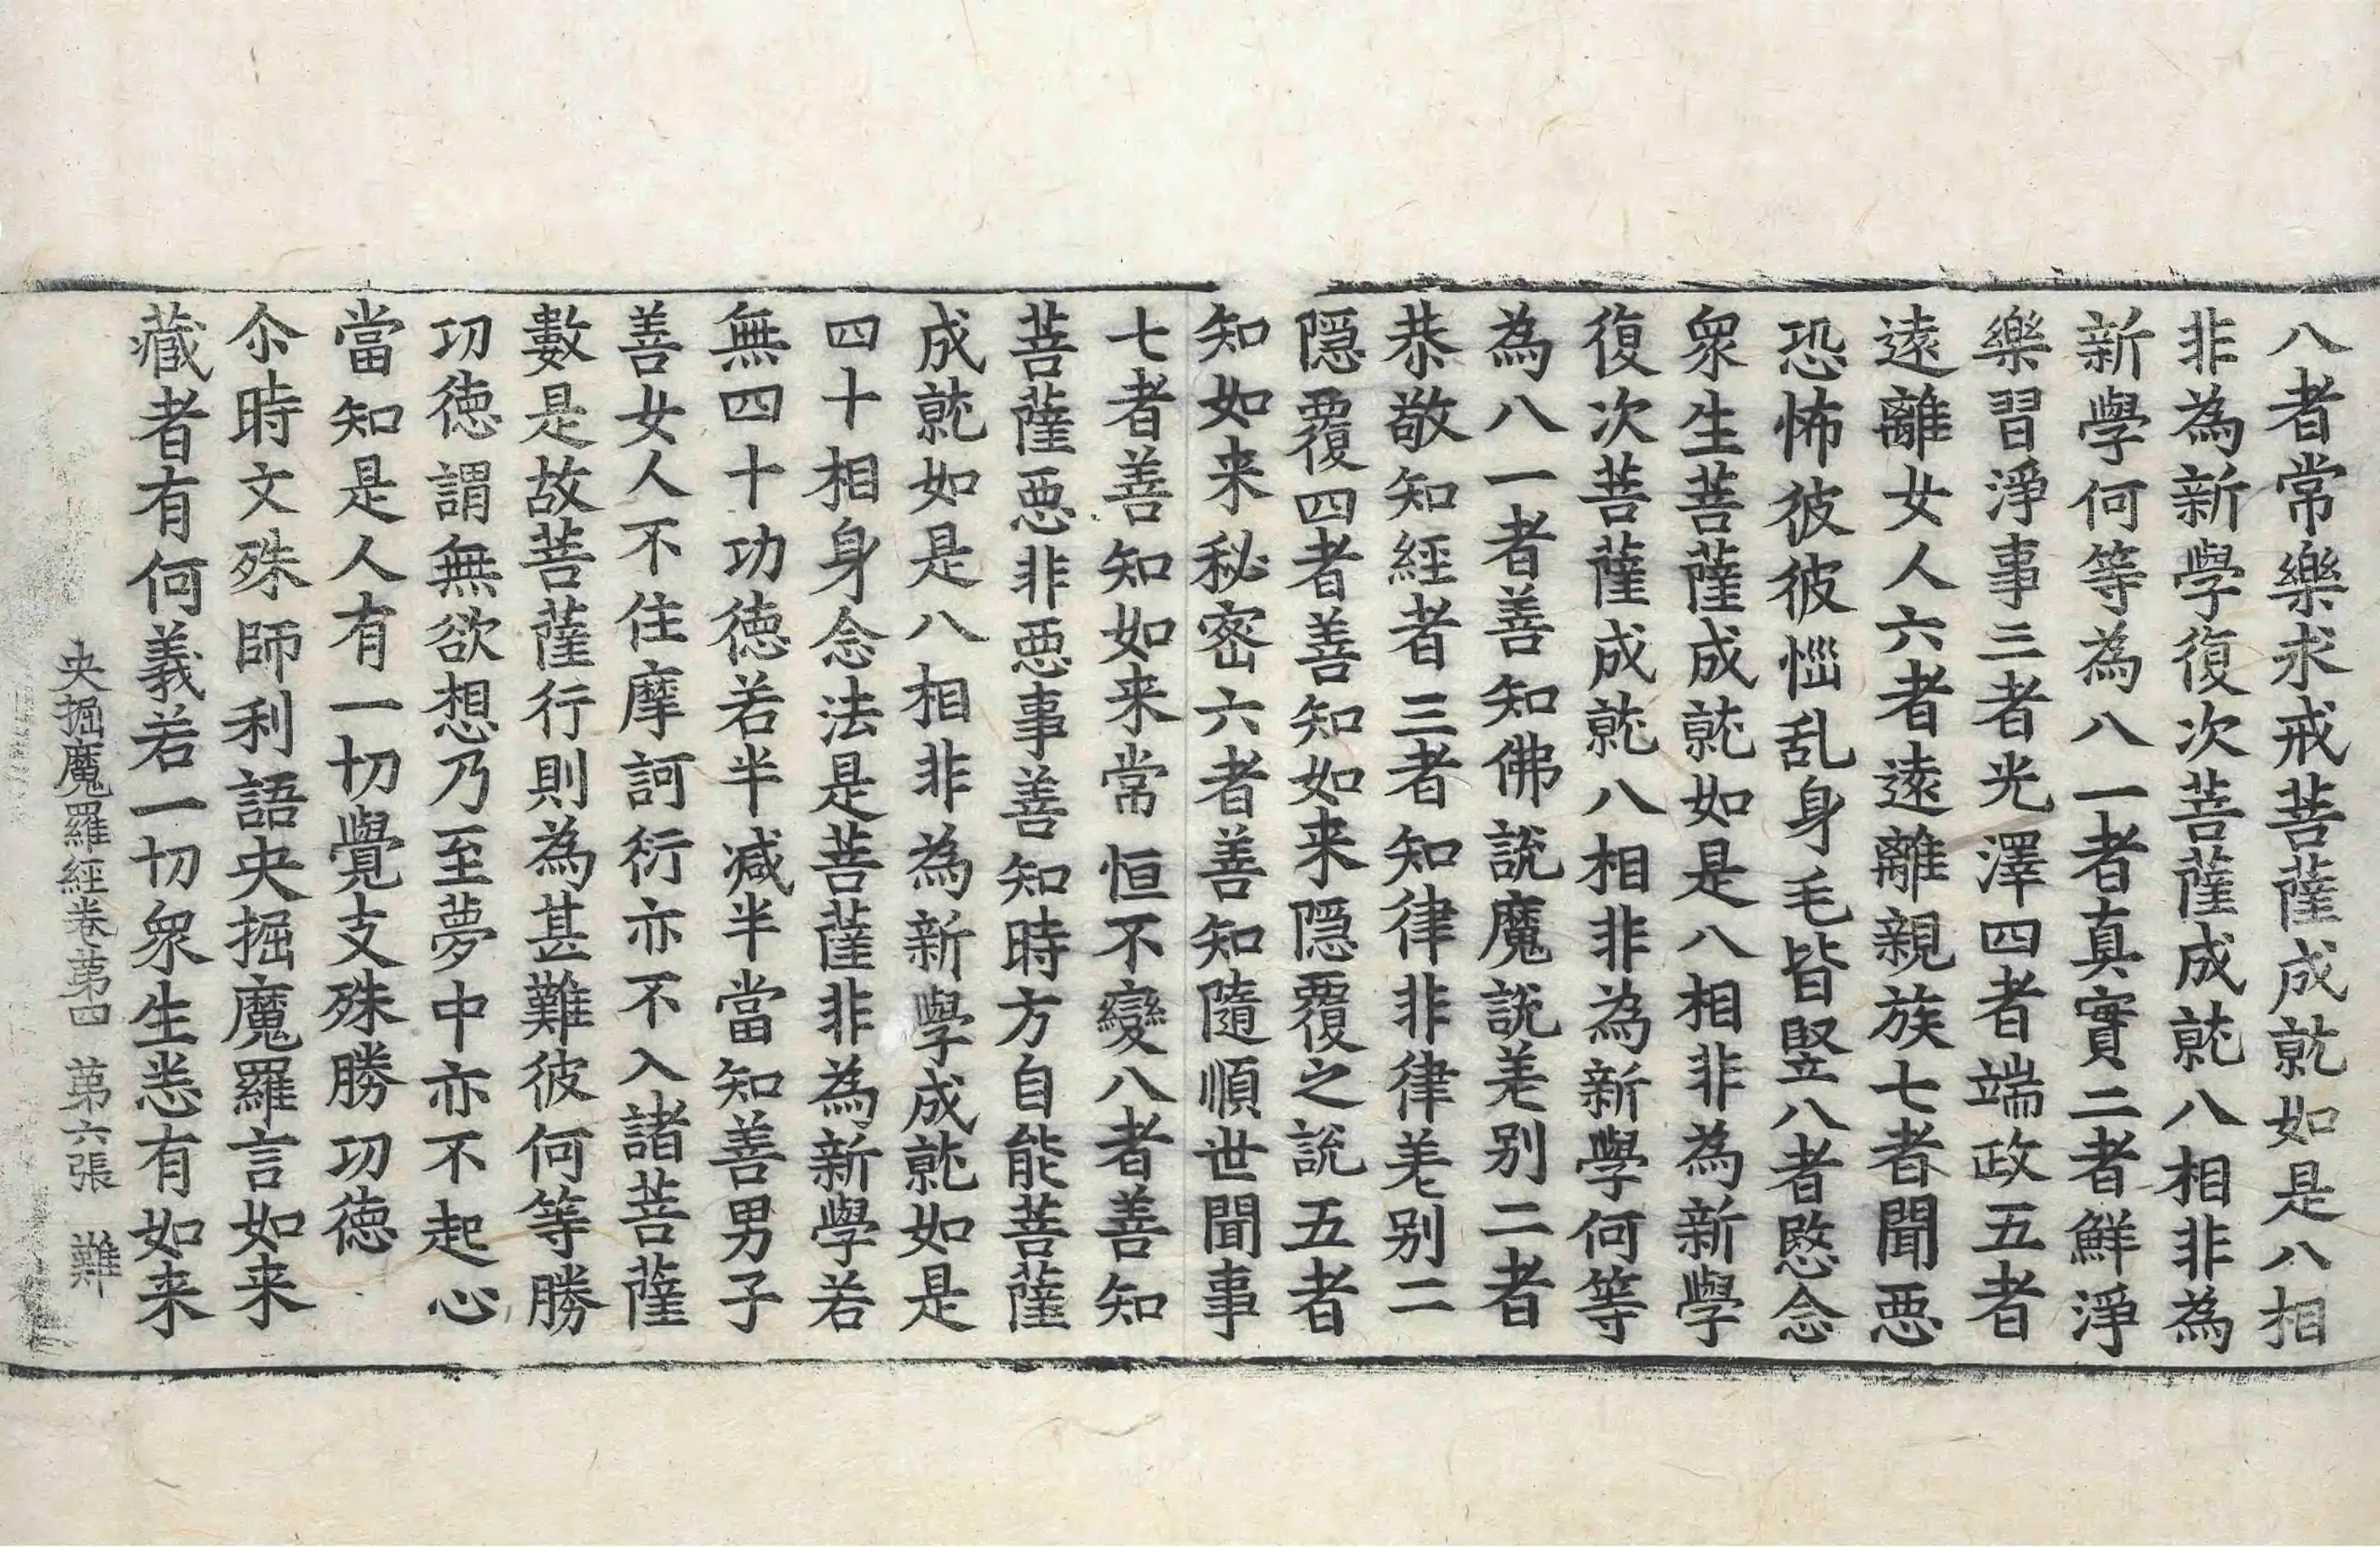 八者常樂求戒菩薩成就如是八相
非為新學復次菩薩成就八相非為
新學何等為八一者真實二者鮮淨
樂習淨事三者光澤四者端政五者
遠離女人六者遠離親族七者聞悪
恐怖彼彼惱乱身毛皆竪八者愍念
衆生菩薩成就如是八相非為新學
復次菩薩成就八相非為新學何等
為八一者善知佛說魔說差别二者
恭敬知經者三者知律非律差别二
隠覆四者善知如来隠覆之說五者
知如来秘密六者善知隨順世閒事
七者善知如来常恒不變八者善知
菩薩悪非悪事善知時方自能菩薩
成就如是八相非為新學成就如是
四十相身念法是菩薩非為新學若
無四十功徳若半减半當知善男子
善女人不住摩訶衍亦不入諸菩薩
數是故菩薩行則為甚難彼何等勝
功徳謂無欲想乃至夢中亦不起心
當知是人有一切覺支殊勝功徳
尒時文殊師利語央掘魔羅言如来
藏者有何義若一切衆生悉有如来
央掘魔羅經卷苐四　苐六張　難